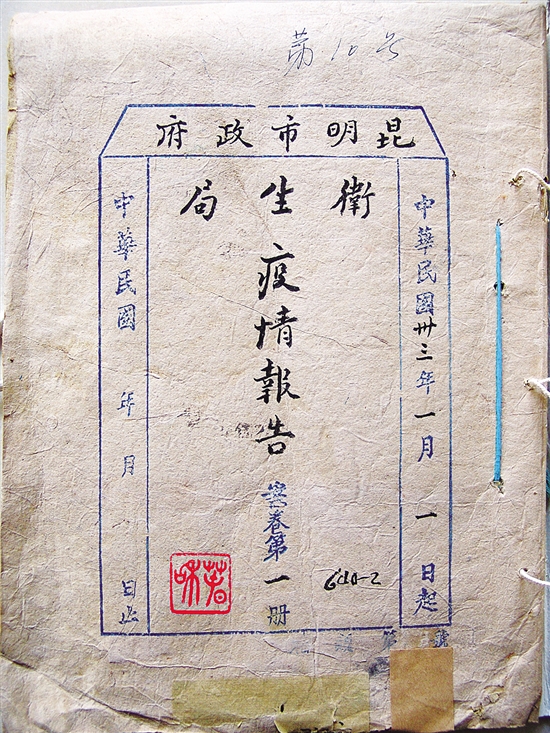 第10号
昆明市政府
中華民國卅三年一月一日起
衛生局
疫情報告
案卷第一册
640-2
中華民國 年 月 日止
第 號